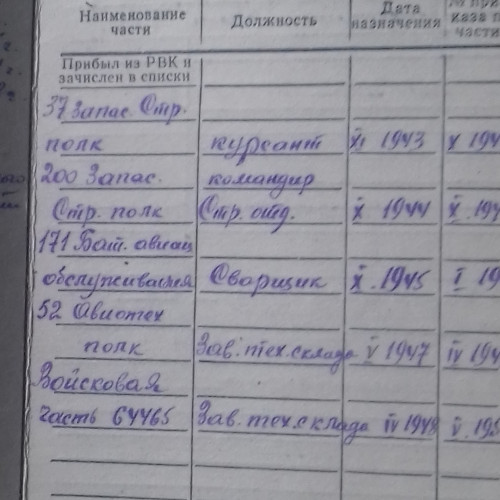 Наименование части Должность Дата назначения
Прибыл из РВК и
зачислен в списки
37 Запас. Стр.
полк курсант XI 1943
200 Запас. командир
Стр. полк Стр. отд. X 1944
171 Бат. авиац
обслуживания Сварщик X. 1945
52 Авиотех
полк Зав. тех. склада V 1947
Войсковая
часть 64465 Зав. тех. склада IV 1948